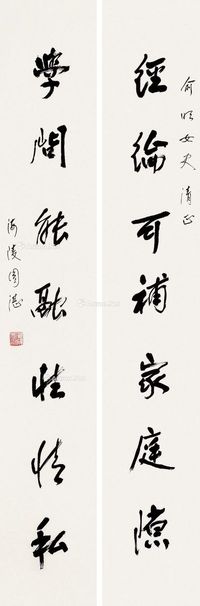 俞女史清正
經綸可補家庭
學問能融性情私
海陵周